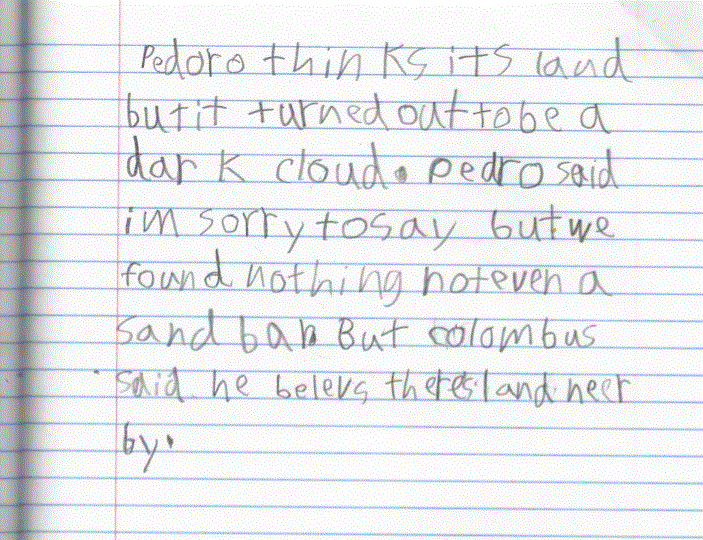 Pedoro thinks its land
but it turned out to be a
dark cloud. pedro said
im sorry to say but we
found nothing not even a
sand bar But colombus
said he belevs theres land neer
by.